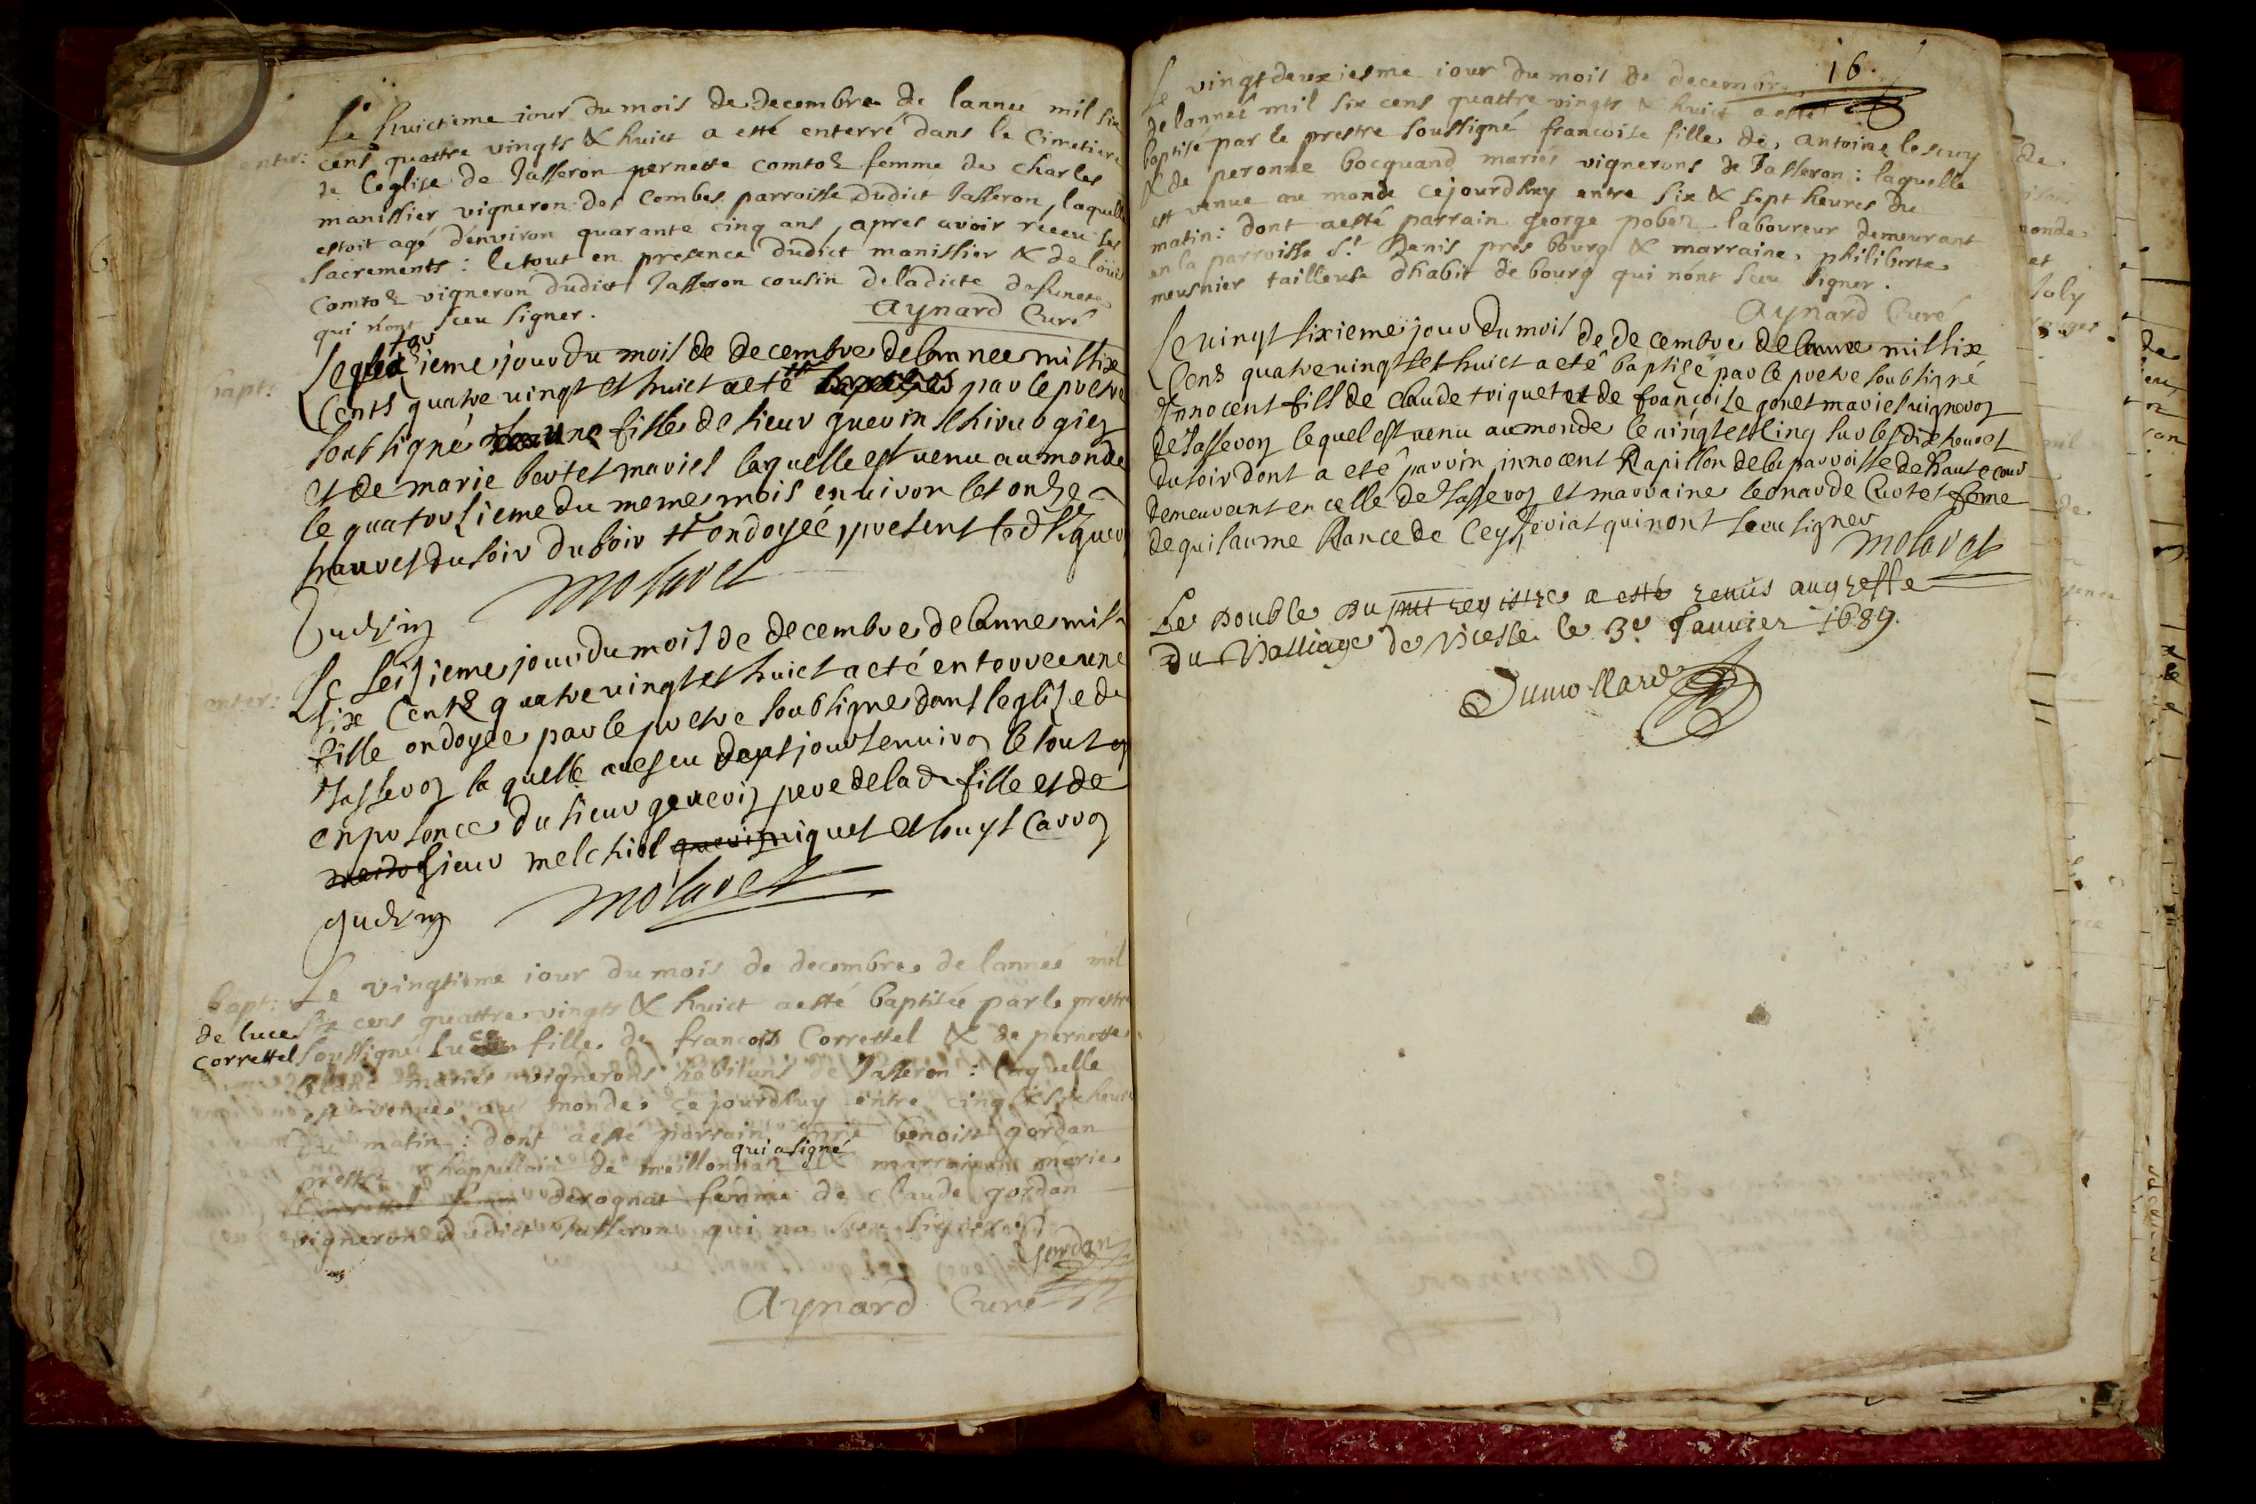 Le huictieme iour du mois de decembre de lannee mil six
enter: cens quattre vingts & huict a esté enterré dans le Cimetiere
de leglise de Jasseron pernette comtoz femme de Charles
manissier vigneron des Combes parroisse dudict Jasseron, laquelle
estoit agé denviron quarante cinq ans, apres avoir receu les
sacrements: le tout en presence dudict manissier & de loüis
Comtoz vigneron dudict Jasseron cousin de ladicte defuncte
qui nont sceu signer. Aynard Curé
tor
Le qua zieme jour du mois de decembre de lannee mil six
bapt: Cents quatre vingt et huict a eté baptisée par le pretre
soubsigné une fille de sieur guerin chirurgien
et de marie bertet mariés laquelle est venu au monde
le quatorzieme du meme mois enuiron les onze
heures du soir du soir # ondoyée, present led sr guer
Gudrin molaret
Le seizieme jour du mois de decembre de lanne mil
enter: six Cents quatre vingt et huict a eté enterree une
fille ondoyée par le pretre soubsigne dans leglise de
Jasseron la quelle a vescu deux jours enuiron le tout en
en presence du sieur guerin pere de lade fille et de
sieur melchiol niguet et louys Carron
gudrin molaret
bapt: Le vingtieme iour du mois de decembre de lannee mil
de luce six cens quattre vingts & huict a esté baptisée par le prestre
correttel soussigné luce fille de francois Correttel & de pernette
mariés vignerons habitans de Jasseron: laquelle
est venue au monde cejourdhuy entre cinq & six heures
du matin: dont a esté parrain mre benoist gordan
qui a signé
prestre chappellain de meillonnaz & marraine marie
derognat femme de Claude gordan
vigneron dudict Jasseron qui na sceu signer
Gordan
Aynard Curé
16.
Le vingt deuxiesme iour du mois de decembre
de lannée mil six cens quattre vingts & huict a esté
baptisé par le prestre soussigné francoise fille de Antoine lescuy
& de peronne bocquand mariés vignerons de Jasseron: laquelle
est venue au monde cejourdhuy entre six & sept heures du
matin: dont a esté parrain george pobez laboureur demeurant
en la parroisse St Denis pres bourg & marraine philiberte
meusnier tailleuse dhabit de bourg qui nont sceu signer.
Aynard Curé
Le vingt sixieme jour du mois de decembre de lanne mil six
Cens quatre vingt et huict a eté baptisé par le pretre soubsigné
Innocent fils de Claude triquet et de francoise gonet maries vigneron
de Jasseron lequel est venu au monde le vingt et cinq sur les dix heures
du soir dont a eté parrin innocent Rapillon de la parroisse de haute cour
demeurant en celle de Jasseron et marraine leonarde Curtet feme
de guilaume Rance de Ceyseriat qui nont sceu signer
molaret
Le double du pnt registre a esté remis au greffe
du Balliage de Bresse le 3e Janvier 1689.
Dumollard